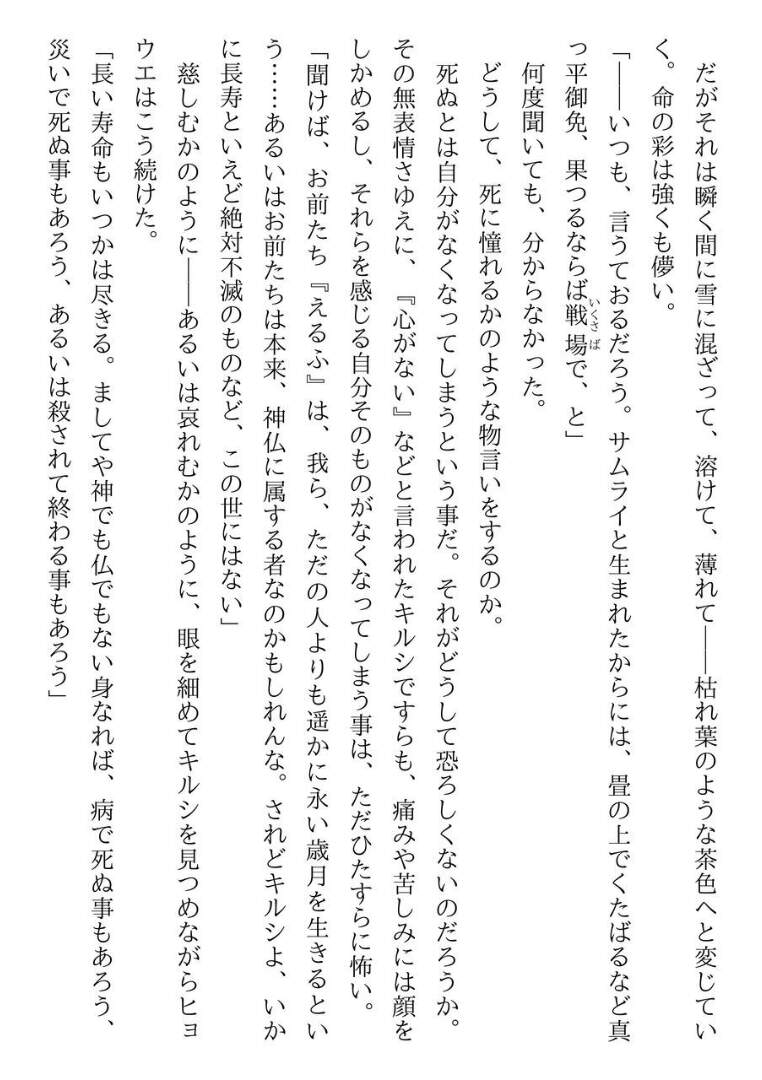 だがそれは瞬く間に雪に混ざって、溶けて、薄れて――枯れ葉のような茶色へと変じてい
く。命の彩は強くも儚い。
「――いつも、言うておるだろう。サムライと生まれたからには、畳の上でくたばるなど真
っ平御免、果つるならば戦場で、と」
いくさば
何度聞いても、分からなかった。
どうして、死に憧れるかのような物言いをするのか。
死ぬとは自分がなくなってしまうという事だ。それがどうして恐ろしくないのだろうか。
その無表情さゆえに、『心がない』などと言われたキルシですらも、痛みや苦しみには顔を
しかめるし、それらを感じる自分そのものがなくなってしまう事は、ただひたすらに怖い。
「聞けば、お前たち『えるふ』は、我ら、ただの人よりも遥かに永い歳月を生きるとい
う……あるいはお前たちは本来、神仏に属する者なのかもしれんな。されどキルシよ、いか
に長寿といえど絶対不滅のものなど、この世にはない」
慈しむかのように――あるいは哀れむかのように、眼を細めてキルシを見つめながらヒョ
ウエはこう続けた。
「長い寿命もいつかは尽きる。ましてや神でも仏でもない身なれば、病で死ぬ事もあろう、
災いで死ぬ事もあろう、あるいは殺されて終わる事もあろう」